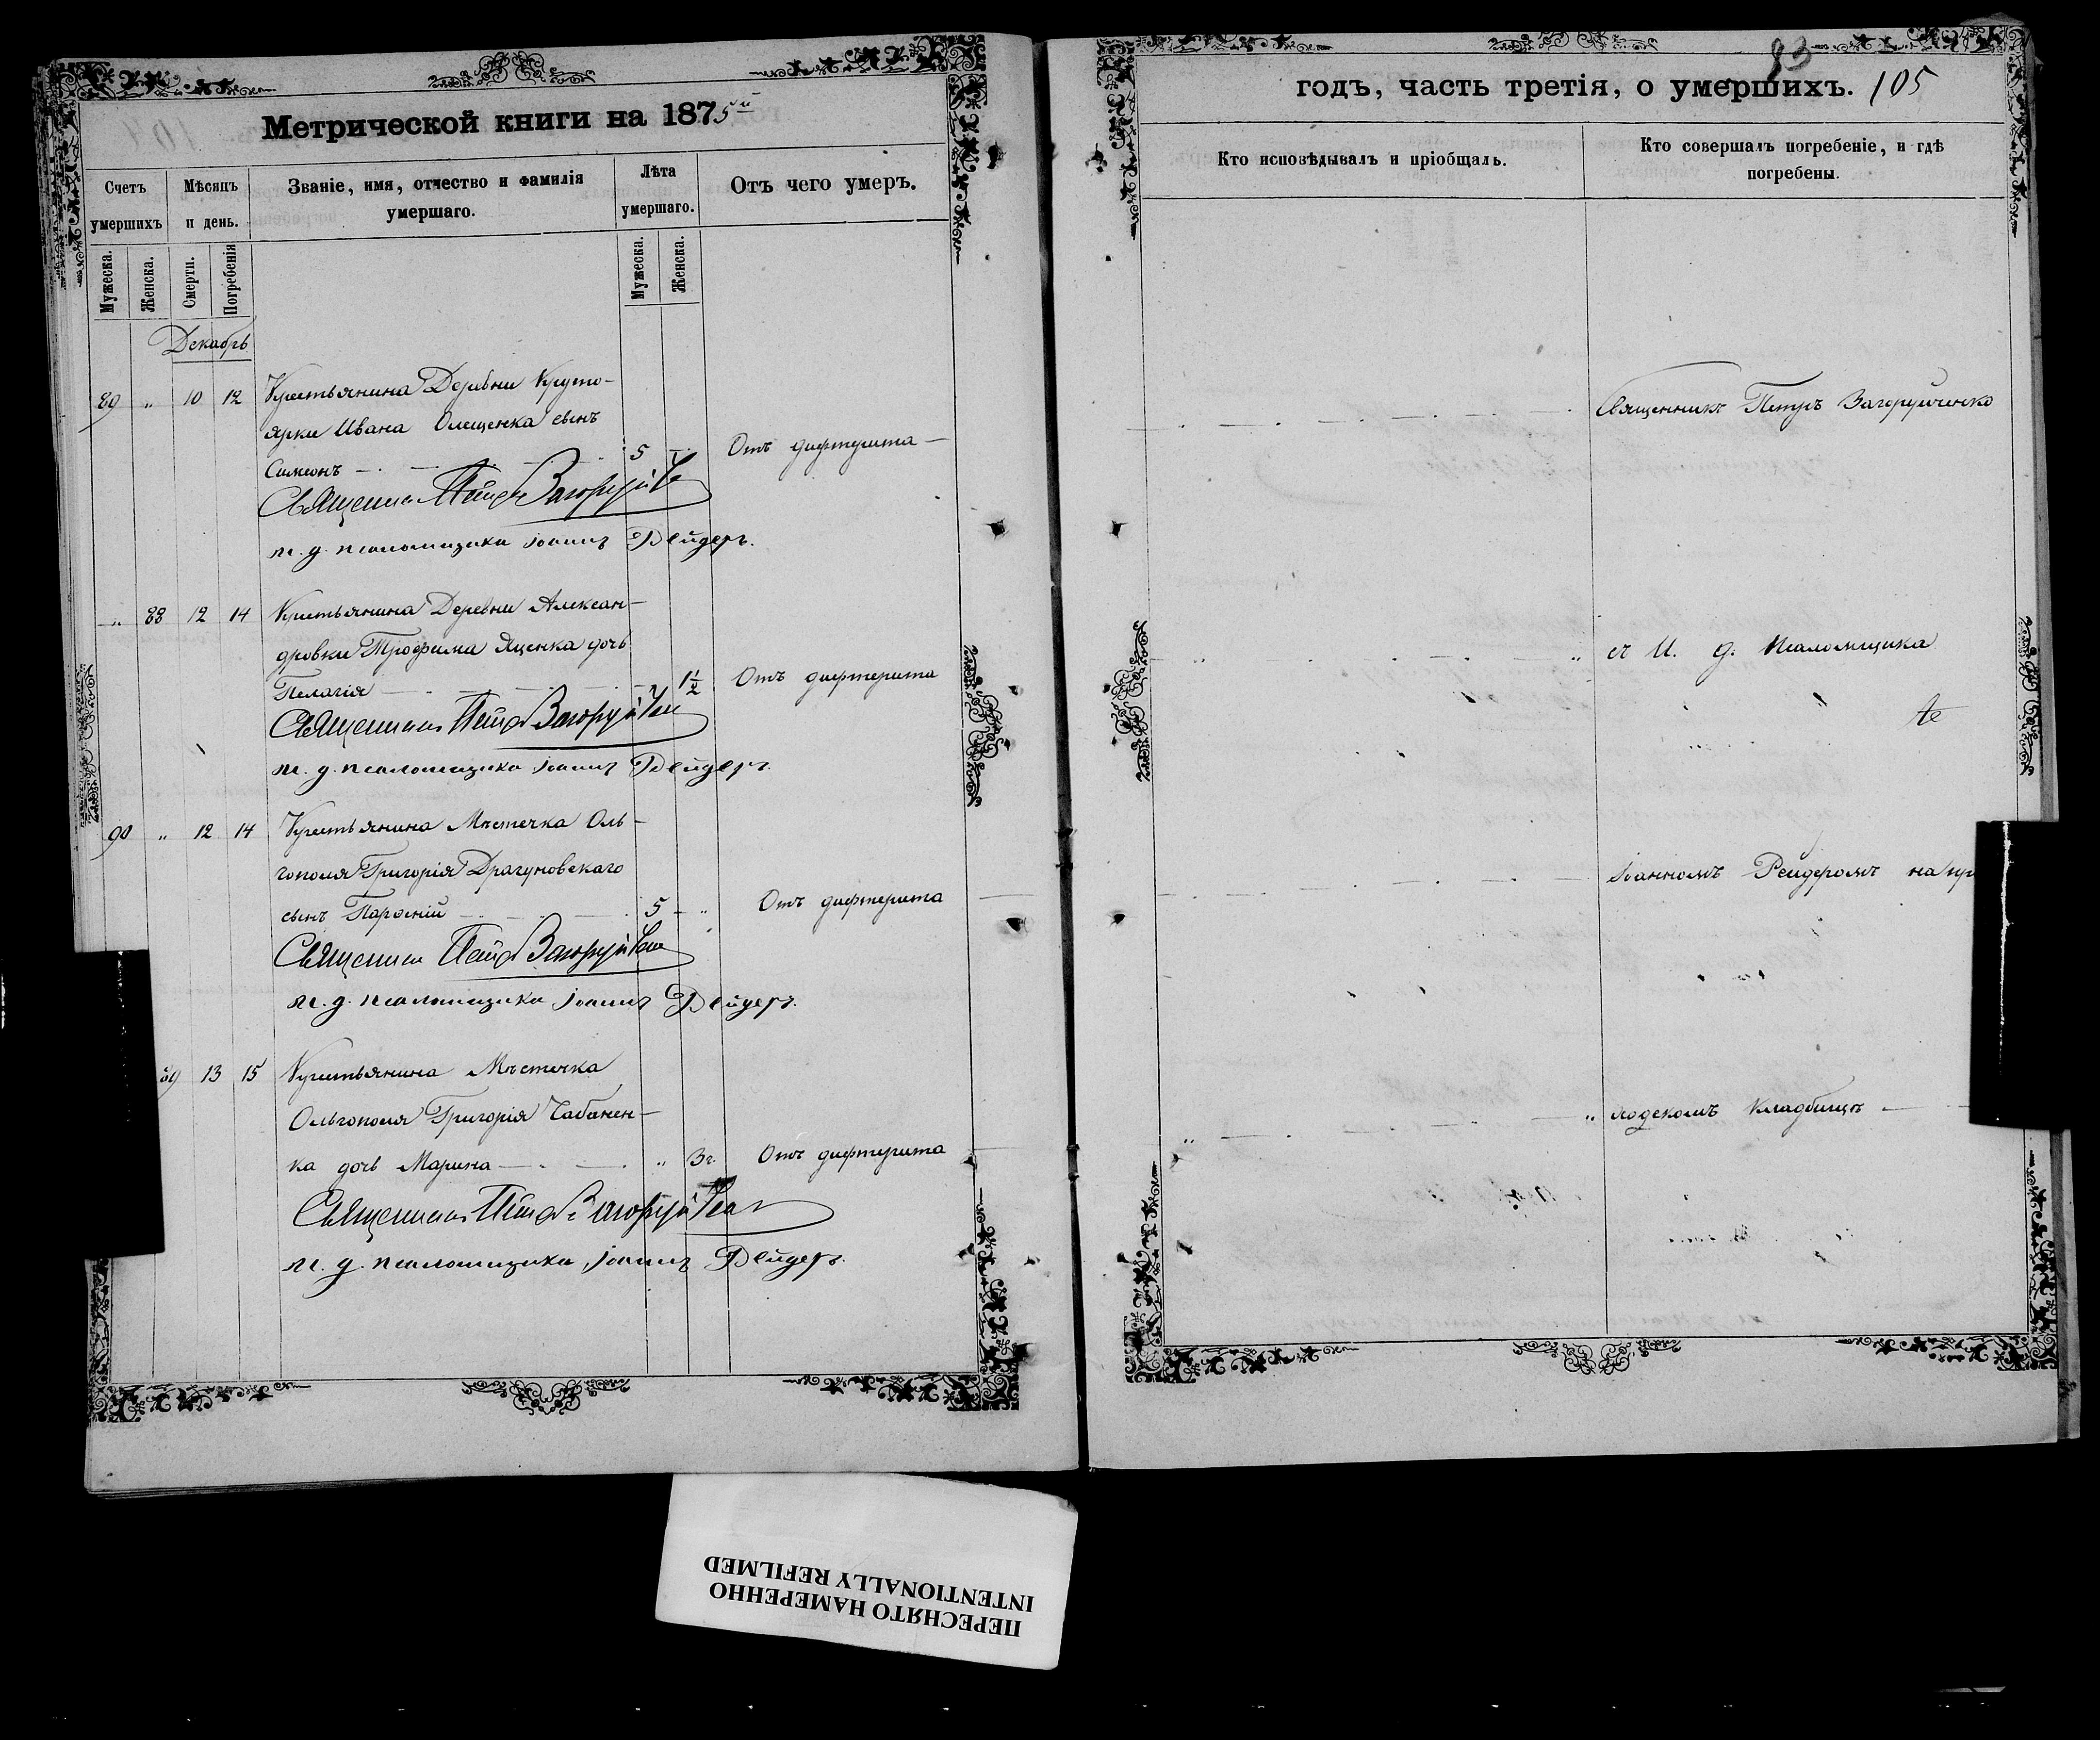 Метрической книги на 1875й
Счетъ умершихъ
Мѣсяцъ и день.
Званіе, имя, отчество и фамилія умершаго.
Лѣта умершаго.
Отъ чего умеръ.
Мужеска.
Женска.
Смерти.
Погребенія
Мужеска.
Женска.
Декабрь
89 „ 10 12 Крестьянина Деревни Круто-
ярки Ивана Олещенка сынъ
Симеонъ 5 Отъ дифтерита
Священникъ Петръ Загоруйченко
и. д. псаломщика Іоаннъ Рейдеръ.
„ 88 12 14 Крестьянина Деревни Алексан-
дровки Трофима Яценка дочь
Пелагія „ 1½ Отъ дифтерита
Священникъ Петръ Загоруйченко
и. д. псаломщика Іоаннъ Рейдеръ.
90 „ 12 14 Крестьянина Мѣстечка Оль-
гополя Григорія Драгуновскаго
сынъ Парфеній 5 „ Отъ дифтерита
Священникъ Петръ Загоруйченко
и. д. псаломщика Іоаннъ Рейдеръ.
89 13 15 Крестьянина Мѣстечка
Ольгополя Григорія Чабанен-
ка дочь Марина „ 3г. Отъ дифтерита
Священникъ Петръ Загоруйченко
и. д. псаломщика Іоаннъ Рейдеръ.
83
годъ, часть третія, о умершихъ. 105
Кто исповѣдывалъ и пріобщалъ.
Кто совершалъ погребеніе, и гдѣ
погребены.
Священникъ Петръ Загоруйченко
„ „ съ И. д. Псаломщика
Іоанномъ Рейдеромъ на при
„ „ ходскомъ кладбищѣ
ПЕРЕСНЯТО НАМЕРЕННО
INTENTIONALLY REFILMED